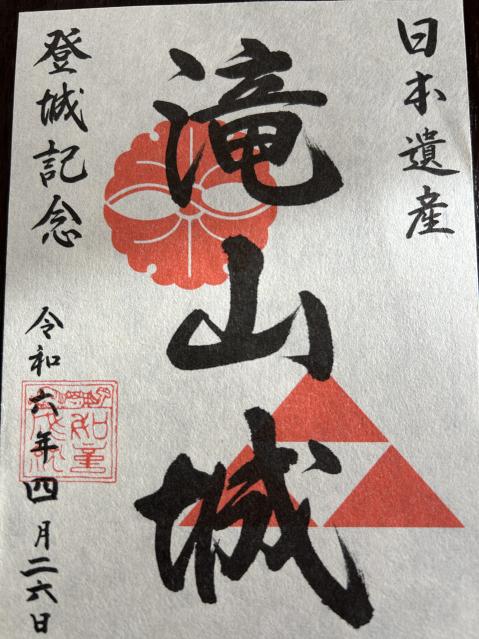 日本遺産
滝山城
登城記念
令和六年四月二六日